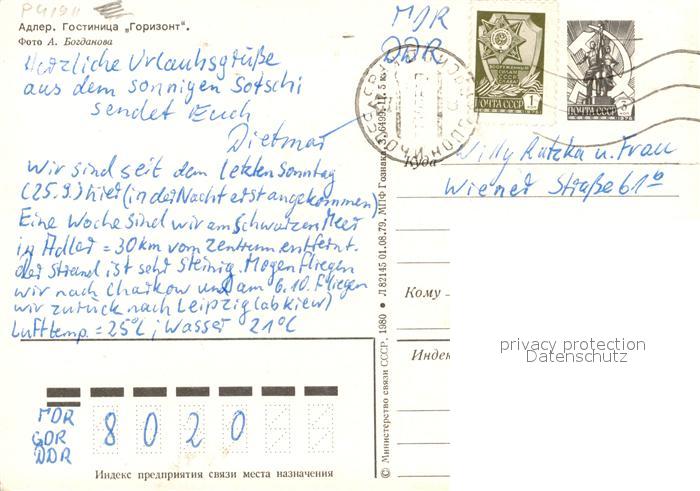 Адлер. Гостиница „Горизонт“.
Фото А. Богданова
Herzliche Urlaubsgrüße
aus dem sonnigen Sotschi
sendet Euch
Dietmar
Wir sind seit dem letzten Sonntag
(25.9.) hier (in der Nacht erst angekommen)
Eine Woche sind wir am Schwarzen Meer
in Adler = 30km vom Zentrum entfernt.
der Strand ist sehr steinig. Morgen fliegen
wir nach Charkow und am 6.10. fliegen
wir zurück nach Leipzig (ab Kiew)
Lufttemp. = 25°C ; Wasser 21°C
MDR
GDR
DDR
8 0 2 0
Индекс предприятия связи места назначения
© Министерство связи СССР, 1980 • Л 82145 01.08.79. МПФ Гознака
MDR
DDR
ВООРУЖЕННЫЕ СИЛЫ СССР
ПОЧТА СССР 1
ПОЧТА СССР
Куда Willy Kutzka u. Frau
Wiener Straße 61b
Кому
Индек
privacy protection
Datenschutz